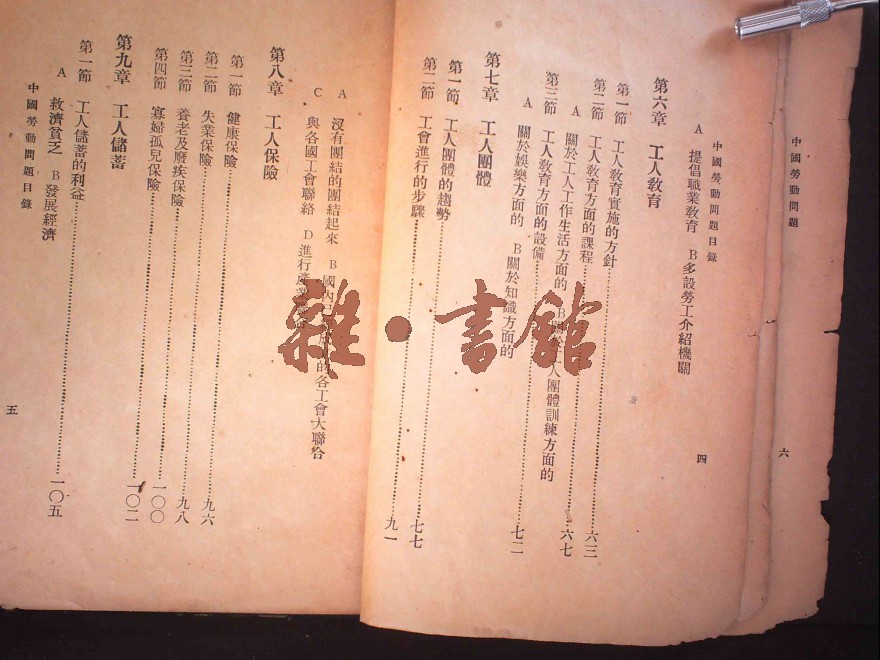 中國勞動問題
六
中國勞動問題目錄
A 提倡職業敎育 B多設勞工介紹機關
第六章 工人敎育
第一節 工人敎育實施的方針……六三
第二節 工人敎育方面的課程……六七
A 關於工人工作生活方面的 B關於工人團體訓練方面的
第三節 工人敎育方面的設備……七二
A 關於娛樂方面的 B關於知識方面的
第七章 工人團體
第一節 工人團體的趨勢……七七
第二節 工會進行的步驟……九一
四
A 沒有團結的團結起來 B國內 的各工會大聯合
C 與各國工會聯絡 D進行產業
第八章 工人保險
第一節 健康保險……九六
第二節 失業保險……九八
第三節 養老及廢疾保險……一〇〇
第四節 寡婦孤兒保險……一〇二
第九章 工人儲蓄
第一節 工人儲蓄的利益……一〇五
A 救濟貧乏 B發展經濟
中國勞動問題目錄
五
雜·書館